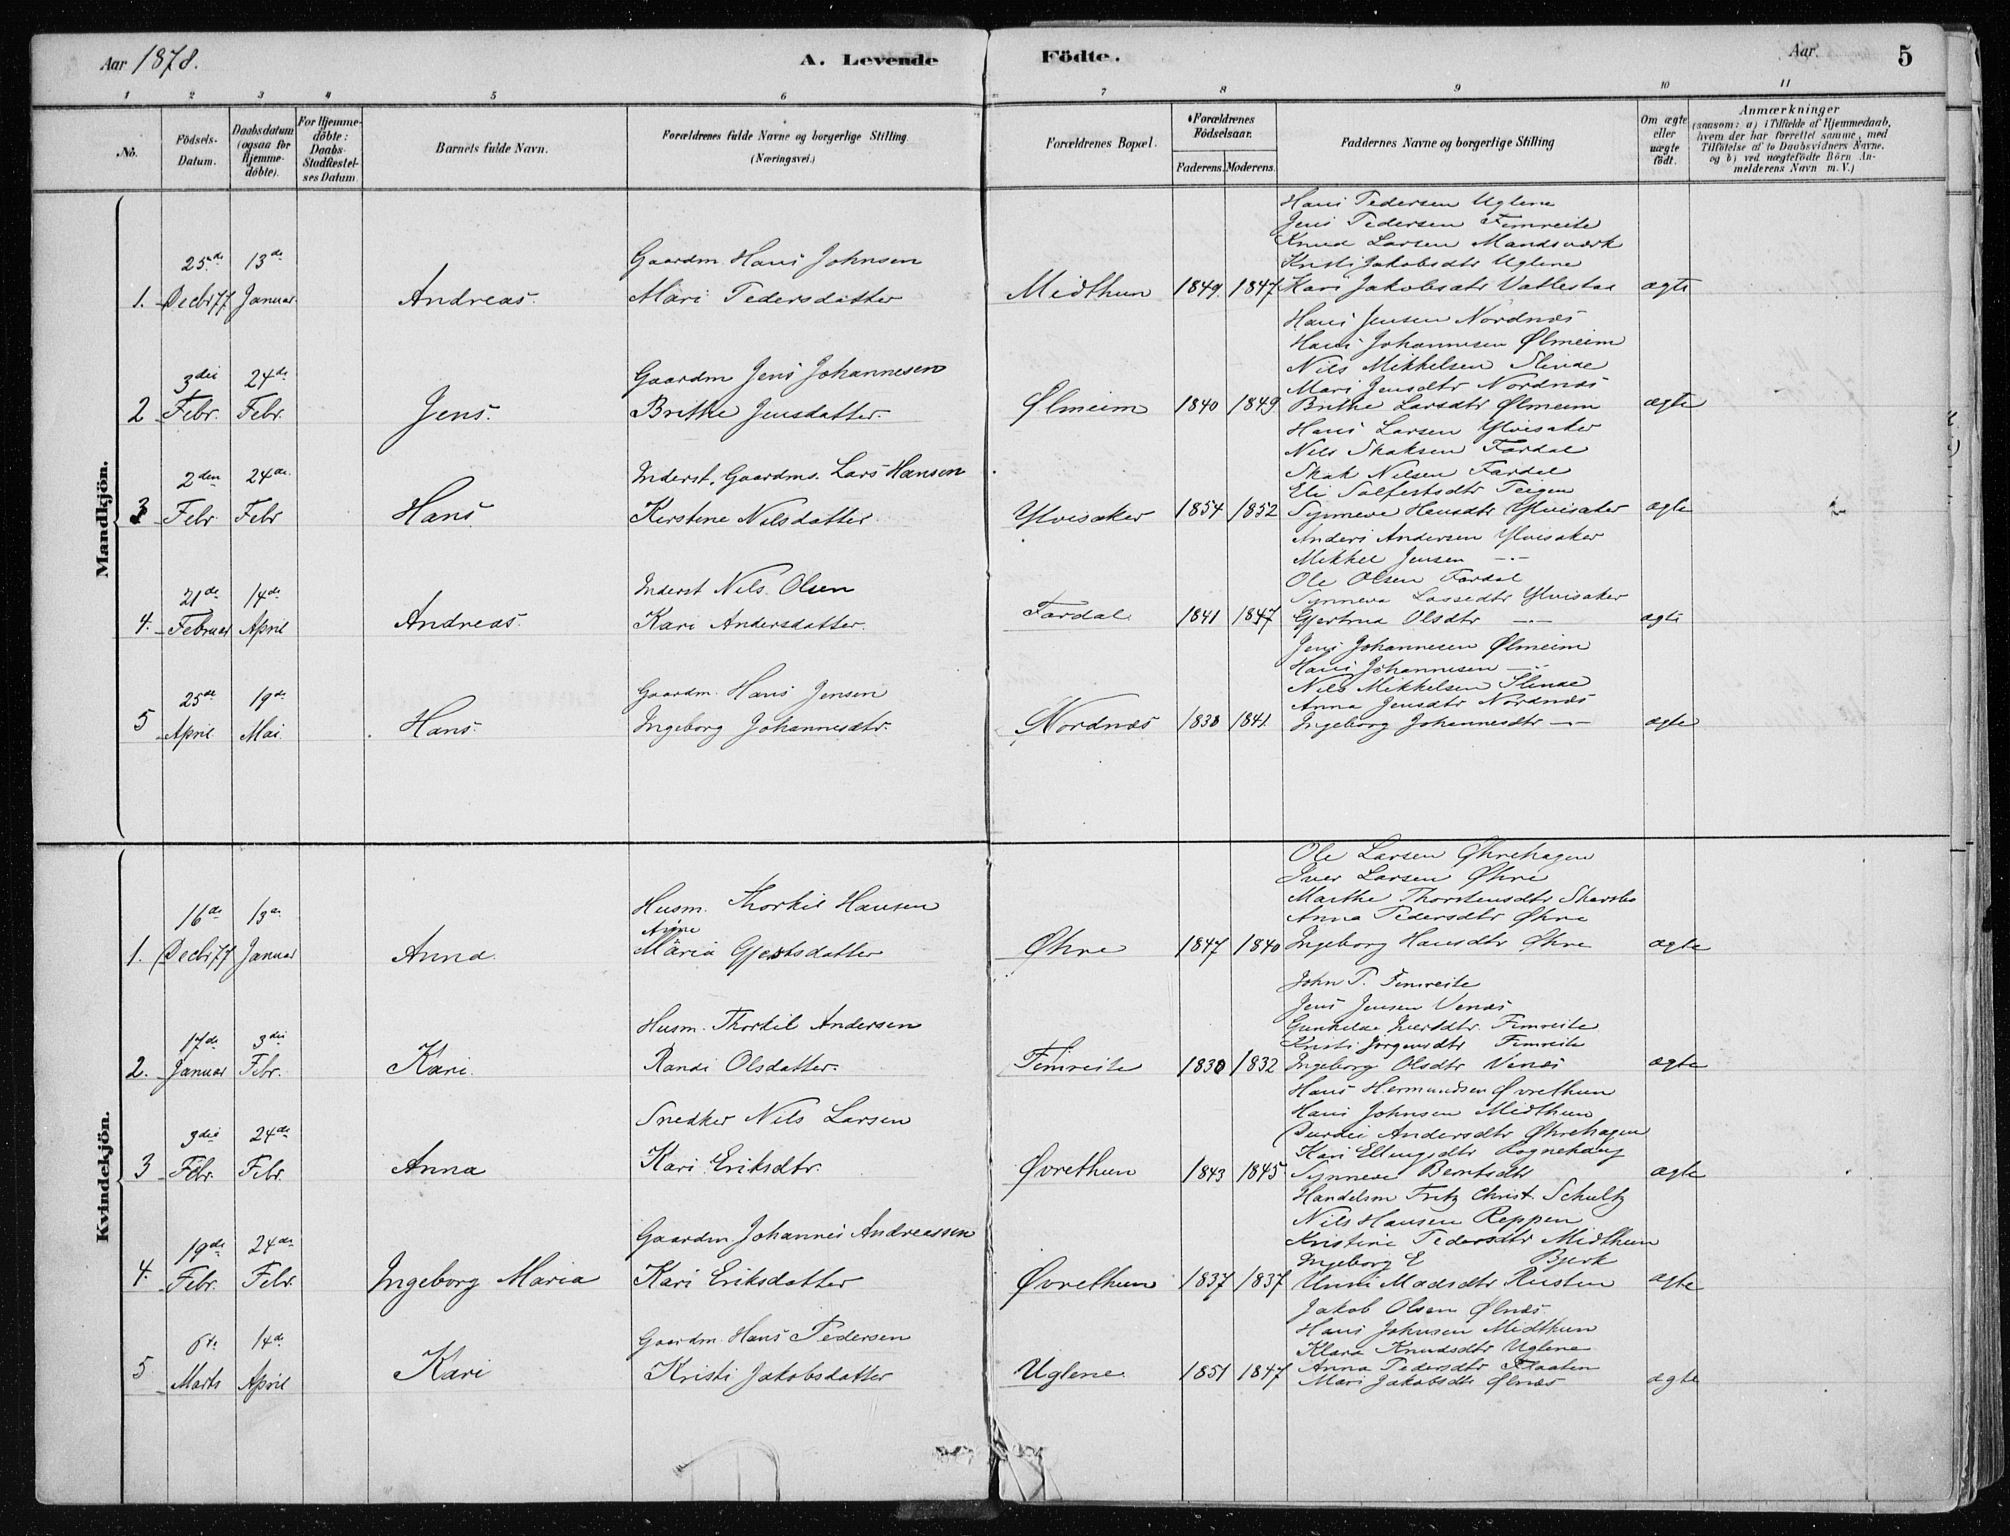 Aar 1878.
A. Levende Fødte.
Aar
5
1 2 3 4 5 6 7 8 9 10 11
No.
Fødsels-Datum.
Daabsdatum (ogsaa for Hjemmedøbte).
For Hjemmedøbte: Daabs-Stadfæstelses Datum.
Barnets fulde Navn.
Forældrenes fulde Navne og borgerlige Stilling (Næringsvei.)
Forældrenes Bopæl.
Forældrenes Fødselsaar.
Faderens. Moderens.
Faddernes Navne og borgerlige Stilling
Om ægte eller uægte født.
Anmærkninger
(saasom: a) i Tilfælde af Hjemmedaab, hvem der har forrettet samme, med Tilføielse af to Daabsvidners Navne. og b) ved uægtefødte Børn Anmelderens Navn m. V.)
Mandkjön.
Hans Pedersen Uglene
Jens Pedersen Fimreite
Knud Larsen Mandsværk
25de 13de Gaardm. Hans Johnsen Kristi Jakobsdtr Uglene
1. Decbr 77 Januar. Andreas. Mari Pedersdatter Midthun 1849 1847 Kari Jakobsdtr Vallestad ægte
Hans Jensen Nordnæs
Hans Johannesen Ølmeim
Nils Mikkelsen Slinde
3die 24de Gaardm Jens Johannesen Mari Jensdtr Nordnæs
2 Febr. Febr. Jens. Brithe Jensdatter Ølmeim 1840 1849 Brithe Larsdtr Ølmeim ægte
Hans Larsen Ylvisaker
Nils Skaksen Fardal
Skak Nilsen Fardal
2den 24de Inderst, Gaardms. Lars Hansen Eli Solfestsdtr Teigen
3 Febr. Febr Hans Kerstene Nilsdatter Ylvisaker 1854 1852 Synneve Hansdtr Ylvisaker ægte
Anders Andersen Ylvisaker
Mikkel Jensen —
Ole Olsen Fardal
21de 14de Inderst Nils Olsen Synneva Lassedtr Ylvisaker
4. Februar April Andreas. Kari Andersdatter. Fardal 1841 1847 Gjertrud Olsdtr — ægte
Jens Johannesen Ølmeim
Hans Johannesen —
Nils Mikkelsen Slinde
25de 19de Gaardm. Hans Jensen Anna Jensdtr Nordnæs
5 April Mai Hans. Ingeborg Johannesdtr. Nordnæs 1838 1841 Ingeborg Johannesdtr — ægte
Kvindekjön.
Ole Larsen Øhrehagen
Iver Larsen Øhre
Marthe Thorstensdtr Skarsbø
16de 13de Husm. Thorkil Hansen Anna Pedersdtr Øhre
Anne
1. Decbr 77 Januar Anna. Maria Gjertsdatter Øhre 1847 1840 Ingeborg Hansdtr Øhre ægte
John P. Fimreite
Jens Jensen Venæs
Gunhilde Iversdtr. Fimreite
17de 3die Husm. Thorkil Andersen Kristi Jörgensdtr Fimreite
2. Januar Febr. Kari. Randi Olsdatter. Fimreite 1830 1832 Ingeborg Olsdtr Venæs ægte
Hans Hermundsen Øvrethun
Hans Johnsen Midthun
Durdei Andersdtr Øhrehagen
3die 24de Snedker Nils Larsen Kari Ellingsdtr Lognehaug
3 Febr. Febr. Anna Kari Eriksdtr. Øvrethun 1843 1845 Synneve Berntsdtr ægte
Handelsm Fritz Christ. Schultz
Nils Hansen Reppen
Kristine Pedersdtr Midthun
19de 24de Gaardm Johannes Andreassen Ingeborg E Bjerk
4. Febr. Febr. Ingeborg Maria Kari Eriksdatter Øvrethun 1837 1837 Unni Madsdtr Rusten ægte
Jakob Olsen Ølnæs
Hans Johnsen Midthun
Klara Knudsdtr Uglene
6te 14de Gaardm. Hans Pedersen Anna Pedersdtr Flaaten
5 Marts April Kari Kristi Jakobsdatter Uglene 1851 1847 Mari Jakobsdtr Ølnæs ægte